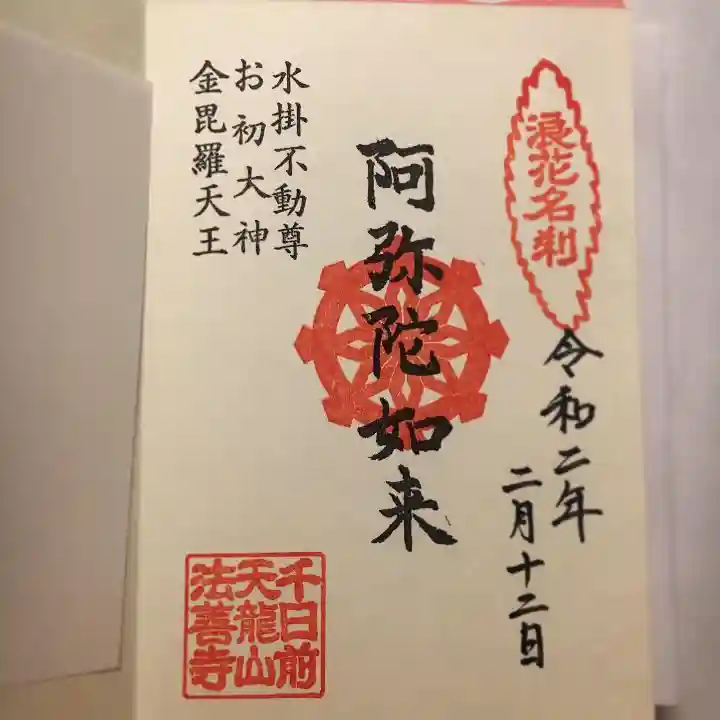 浪花名刹
令和二年
二月十二日
阿弥陀如来
水掛不動尊
お初大神
金毘羅天王
千日前
天龍山
法善寺